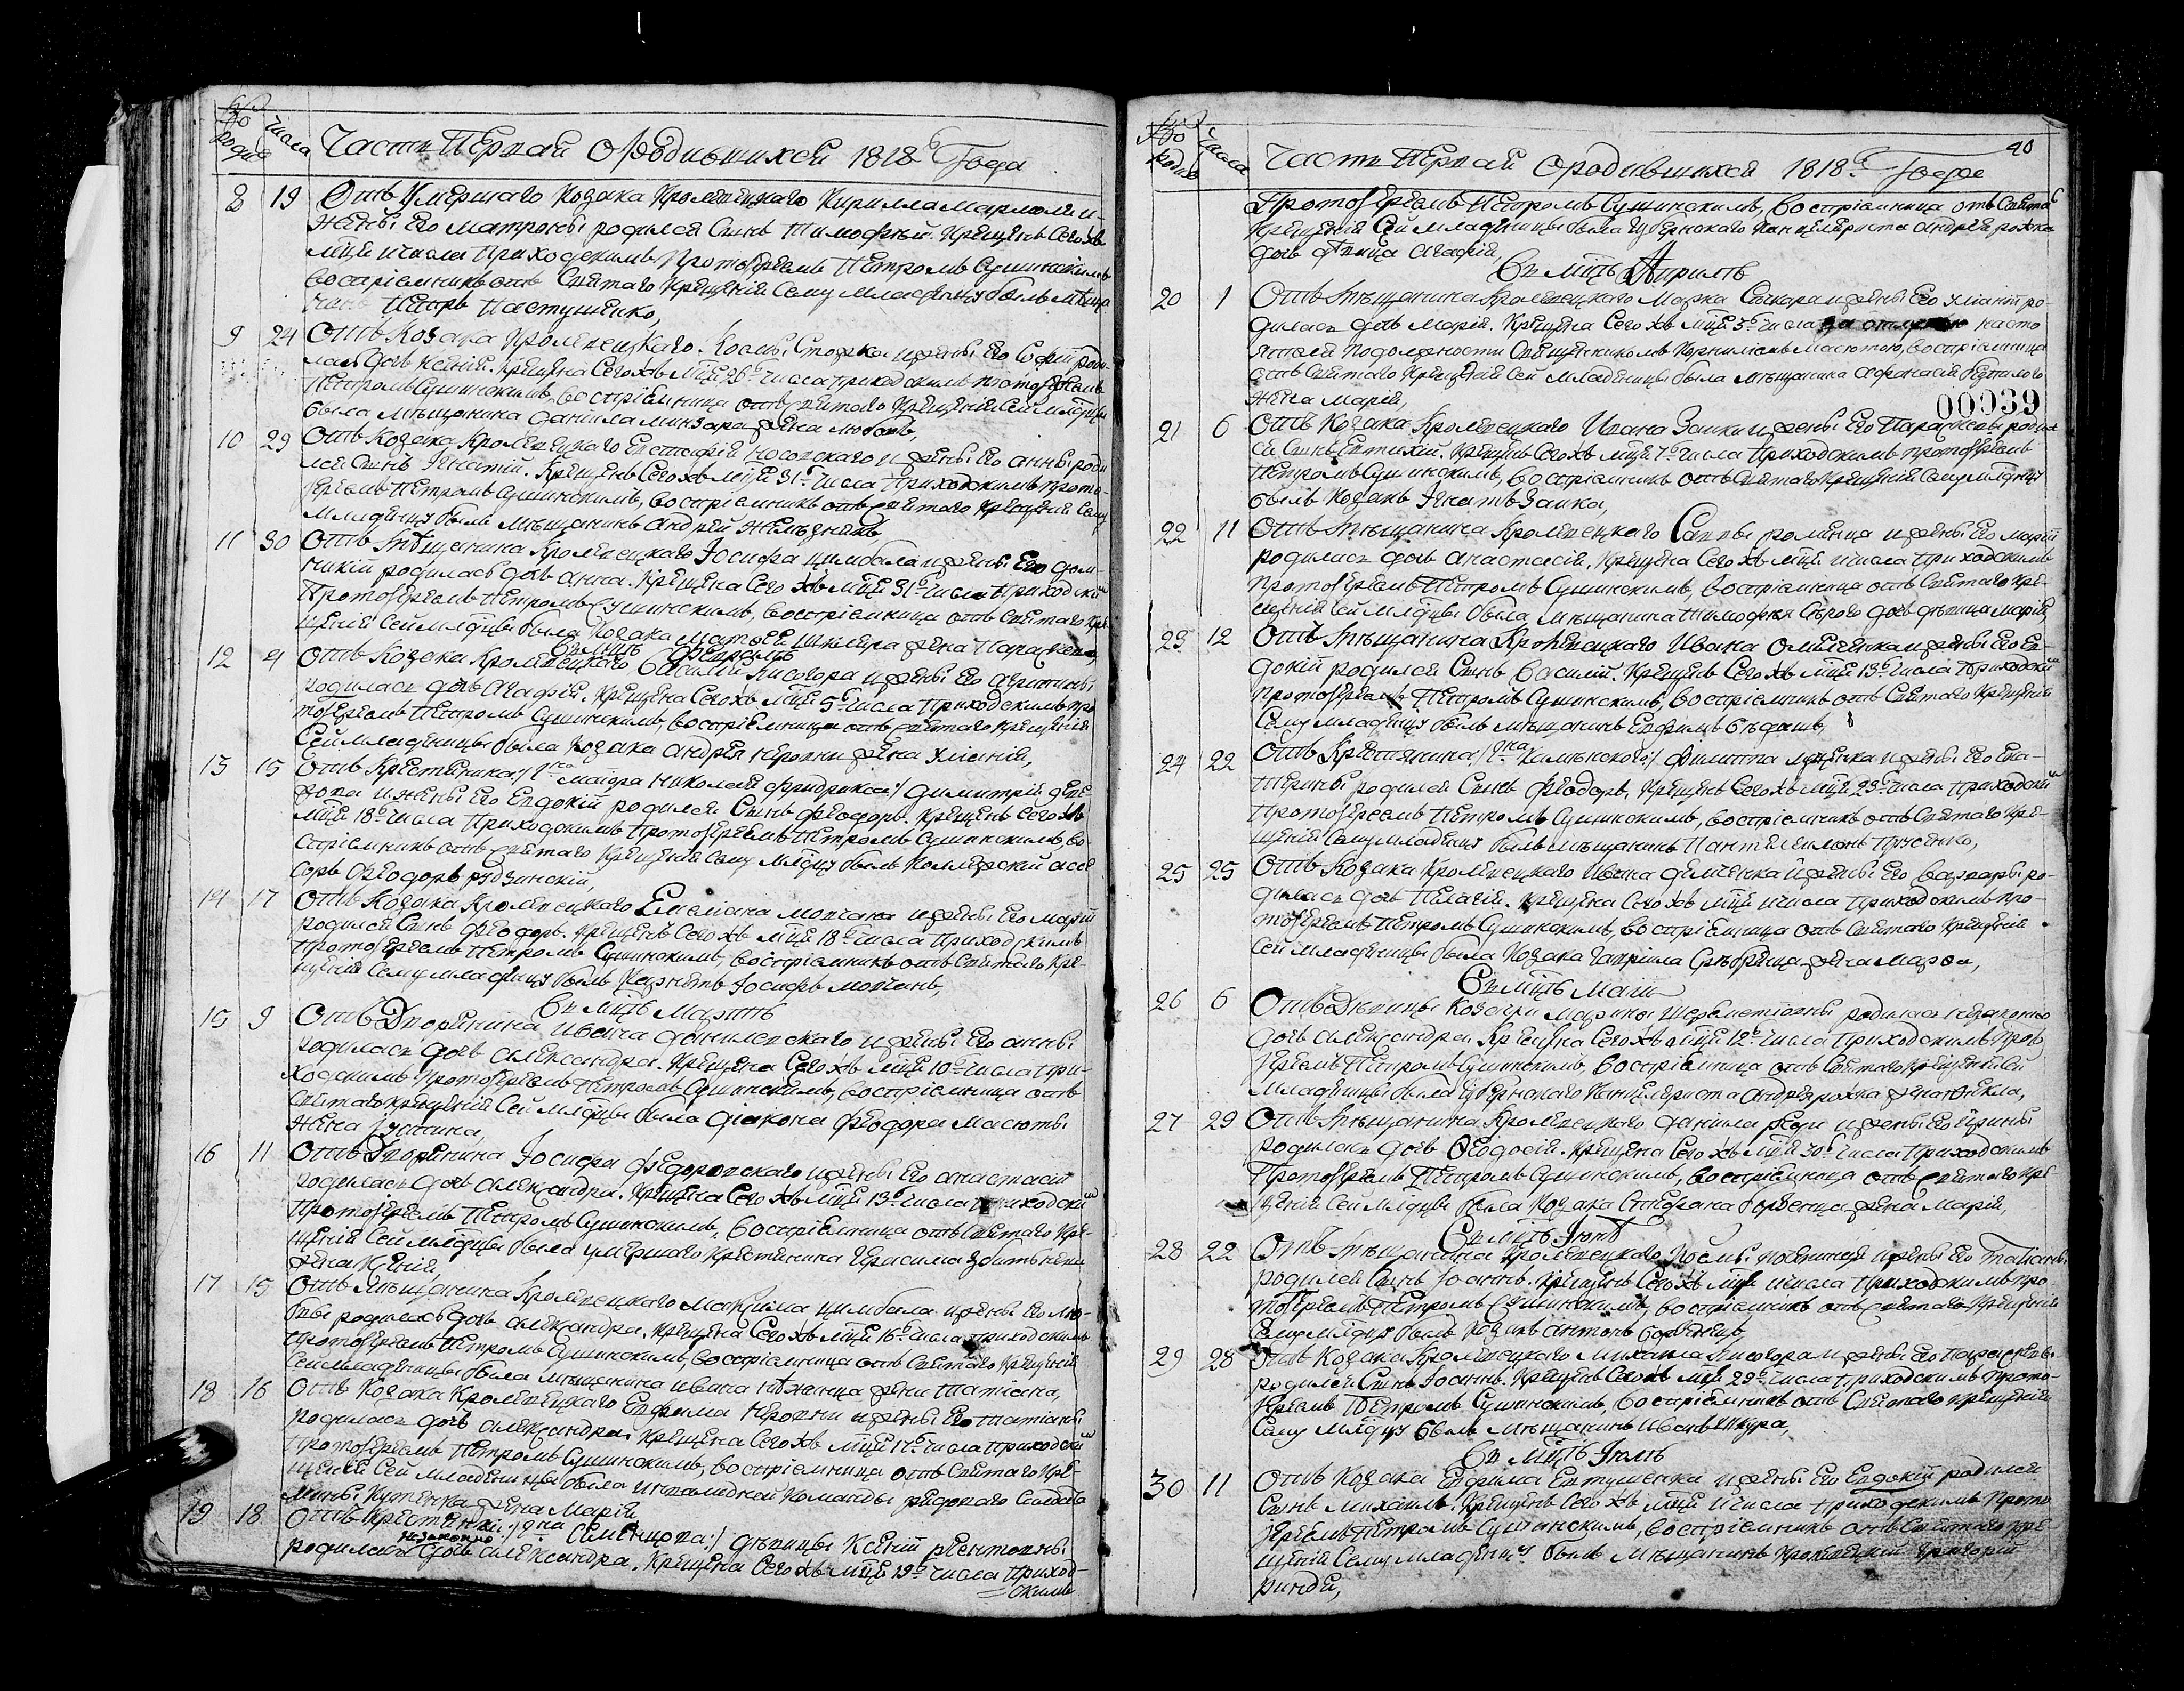 Число
Часть Первая о Родившихся 1818 Года
8 19 Отъ Умершаго Козака Кролевецкаго Кирилла
Жены Его Матроны родился Сынъ Тимофей. Крещенъ Сего жъ
мца и числа Приходскимъ Протоіереемъ Петромъ Сушинскимъ
Воспріемникъ отъ Святаго Крещенія Сему Младенцу былъ
Петръ Пастушенко,
9 24 Отъ Козака Кролевецкаго Космы и жены Его Софіи роди-
лась дочь Ксенія. Крещена Сегожъ Мца 26 числа приходскимъ протоіереемъ
Петромъ Сушинскимъ, воспріемница отъ Святаго Крещенія Сей Младце
была мещанина Данила жена Любовь,
10 29 Отъ Козака Кролевецкаго Евстафія Носовскаго и жены Его Анны роди
лся Сынъ Игнатій. Крещенъ Сегожъ мца 31 числа Приходскимъ прото-
іереемъ Петромъ Сушинскимъ, воспріемникъ отъ Святаго Крещенія Сему
Младенцу былъ Мещанинъ Андрей
11 30 Отъ Мѣщанина Кролевецкаго Іосифа Цимбала и жены Его Дом-
никіи родилась дочь Анна. Крещена Сего жъ Мца 31 числа Приходским
Протоіереемъ Петромъ Сушинскимъ, воспріемница отъ Святаго Кре
щенія Сей младце была Козака Матвея жена Параскева,
Въ мцѣ Февралѣ
12 4 Отъ Козака Кролевецкаго Василія Лисогора и жены Его Агрипины
родилась дочь Агафія. Крещена Сегожъ Мца 5 числа Приходскимъ про
тоіереемъ Петромъ Сушинскимъ, воспріемница отъ Святаго Крещенія
Сей младенице была Козака Андрея жена Уліанія,
13 15 Отъ Крестянина /: Гна Маіора Николая Фридрикса :/ Димитрія
и жены Его Евдокіи родился Сынъ Феодоръ. Крещенъ Сегожъ
Мца 18 числа Приходскимъ Протоіереемъ Петромъ Сушинскимъ, во-
спріемникъ отъ Святаго Крещенія Сему Младцу былъ Колежскій асе
соръ Феодоръ Рудзинскій,
14 17 Отъ Козака Кролевецкаго Емеліана Мовчана и жены Его Маріи
родился Сынъ Феодоръ. Крещенъ Сегожъ Мца 18 числа Приходскимъ
Протоіереемъ Петромъ Сушинскимъ, воспріемникъ отъ Святаго Кре-
щенія Сему младенцу былъ Корнетъ Іосифъ Мовчанъ,
Въ мцѣ Мартѣ
15 9 Отъ Дворянина Ивана Даниловскаго и жены Его Анны
родилась дочь Александра. Крещена Сегожъ Мца 10 числа При-
ходскимъ Протоіереемъ Петромъ Сушинскимъ, воспріемница отъ
Святаго Крещенія Сей младце была Діакона Феодора Масюты
жена Іустина,
16 11 Отъ Дворянина Іосифа Федоровскаго и жены Его Анастасіи
родилась дочь Александра. Крещена Сегожъ Мца 13 числа Приходским
Протоіереемъ Петромъ Сушинскимъ, воспріемница отъ Святаго Кре-
щенія Сей младце была умершаго Крестянина Герасима
жена Ксенія
17 15 Отъ Мѣщанина Кролевецкаго Максима Цимбала и жены Его Лю-
бви родилась дочь Александра. Крещена Сегожъ Мца 16 числа приходскимъ
Протоіереемъ Петромъ Сушинскимъ, воспріемница отъ Святаго Крещенія
Сей младенице была мещанина Ивана жена Татіана,
18 16 Отъ Козака Кролевецкаго Ефима и жены Его Татіаны
родилась дочь Александра. Крещена Сегожъ Мца 17 числа Приходским
Протоіереемъ Петромъ Сушинскимъ, воспріемница отъ Святаго Кре-
щенія Сей Младенице была Инвалидной Команды рядоваго Солдата
жена Марія
19 18 Отъ Крестянки /: Гна Семенцова :/ девицы Ксеніи
незаконно
родилась дочь Александра. Крещена Сегожъ Мца 19 числа Приход-
скимъ
Число
Часть Первая о родившихся 1818 Года
40
Протоіереемъ Петромъ Сушинскимъ, воспріемница отъ Святаг
Крещенія Сей младеницы была Губернскаго Канцеляриста Андрея Рожка
дочь девица Агафія,
Въ мцѣ Априлѣ
20 1 Отъ Мѣщанина Кролевецкаго Марка и жены Его Уліаніи ро-
дилась дочь Марія. Крещена Сего жъ Мца 3 числа за отлучкою насто
ятеля по должности Священникомъ Корниліемъ Масютою, воспріемница
отъ Святаго Крещенія Сей младеницы была Мѣщанина Афанасія
жена Марія,
00039
21 6 Отъ Козака Кролевецкаго Ивана Заики и жены Его Параскевы родил
ся Сынъ Евтихій. Крещенъ Сегожъ Мца 7 числа Приходскимъ протоіереемъ
Петромъ Сушинскимъ, воспріемникъ отъ Святаго Крещенія Сему младенцу
былъ Козакъ Игнатъ Заика,
22 11 Отъ Мѣщанина Кролевецкаго Саввы Романца и жены Его Маріи
родилась дочь Анастасія. Крещена Сегожъ Мца и числа Приходскимъ
Протоіереемъ Петромъ Сушинскимъ, воспріемница отъ Святаго Кре-
щенія Сей младце была, Мѣщанина Тимофея Сѣраго дочь девица Марія,
23 12 Отъ Мѣщанина Кролевецкаго Ивана Омеленка и жены Его Ев-
докіи родился Сынъ Василій. Крещенъ Сегожъ Мца 13 числа Приходским
Протоіереемъ Петромъ Сушинскимъ, воспріемникъ отъ Святаго Крещенія
Сему младенцу былъ мещанинъ Ефимъ
24 22 Отъ Крестянина /: Гна Каменского :/ Филиппа и жены Его Ека-
терины родился Сынъ Феодоръ. Крещенъ Сегожъ Мца 23 числа Приходским
Протоіереемъ Петромъ Сушинскимъ, воспріемникъ отъ Святаго Кре-
щенія Сему младенцу былъ Мещанинъ Пантелеимонъ
25 25 Отъ Козака Кролевецкаго Ивана Демченка и жены Его Варвары ро-
дилась дочь Пелагія. Крещена Сегожъ Мца и числа Приходскимъ про-
тоіереемъ Петромъ Сушинскимъ, воспріемница отъ Святаго Крещенія
Сей младеницы была Козака Гавриила жена Марфа,
Въ мцѣ Маи
26 6 Отъ Девицы Козачки Марины родилась незаконно
дочь Александра. Крещена Сегожъ мца 12 числа Приходскимъ Прото
іереемъ Петромъ Сушинскимъ, воспріемница отъ Святаго Крещенія Сей
младеницы была Губернскаго Канцеляриста Андрея Рожка жена Фекла,
27 29 Отъ Мѣщанина Кролевецкаго Данила и жены Его Ирины
родилась дочь Феодосія. Крещена Сегожъ Мца 30 числа Приходскимъ
Протоіереемъ Петромъ Сушинскимъ, воспріемница отъ Святаго Кре
щенія Сей младце была Козака Стефана Борвенца жена Марія,
Въ мцѣ Іюнѣ
28 22 Отъ Мѣщанина Кролевецкаго и жены Его Татіаны
родился Сынъ Іоаннъ. Крещенъ Сегожъ Мца и числа Приходскимъ про
тоіереемъ Петромъ Сушинскимъ, воспріемникъ отъ Святаго Крещенія
Сему младцу былъ Козакъ Антонъ
29 28 Отъ Козака Кролевецкаго Михаила Лисогора и жены Его Параскевы
родился Сынъ Іоаннъ. Крещенъ Сегожъ Мца 29 числа Приходскимъ Прото-
іереемъ Петромъ Сушинскимъ, воспріемникъ отъ Святаго Крещенія
Сему младцу былъ Мещанинъ Иванъ Шкура,
Въ Мцѣ Іюлѣ
30 11 Отъ Козака Ефима Евтушенка и жены Его Евдокіи родился
Сынъ Михаилъ. Крещенъ Сегожъ Мца и числа Приходскимъ Прото
іереемъ Петромъ Сушинскимъ, воспріемникъ отъ Святаго Кре-
щенія Сему младенцу былъ Мѣщанинъ Кролевецкій Григорій
Ринда,